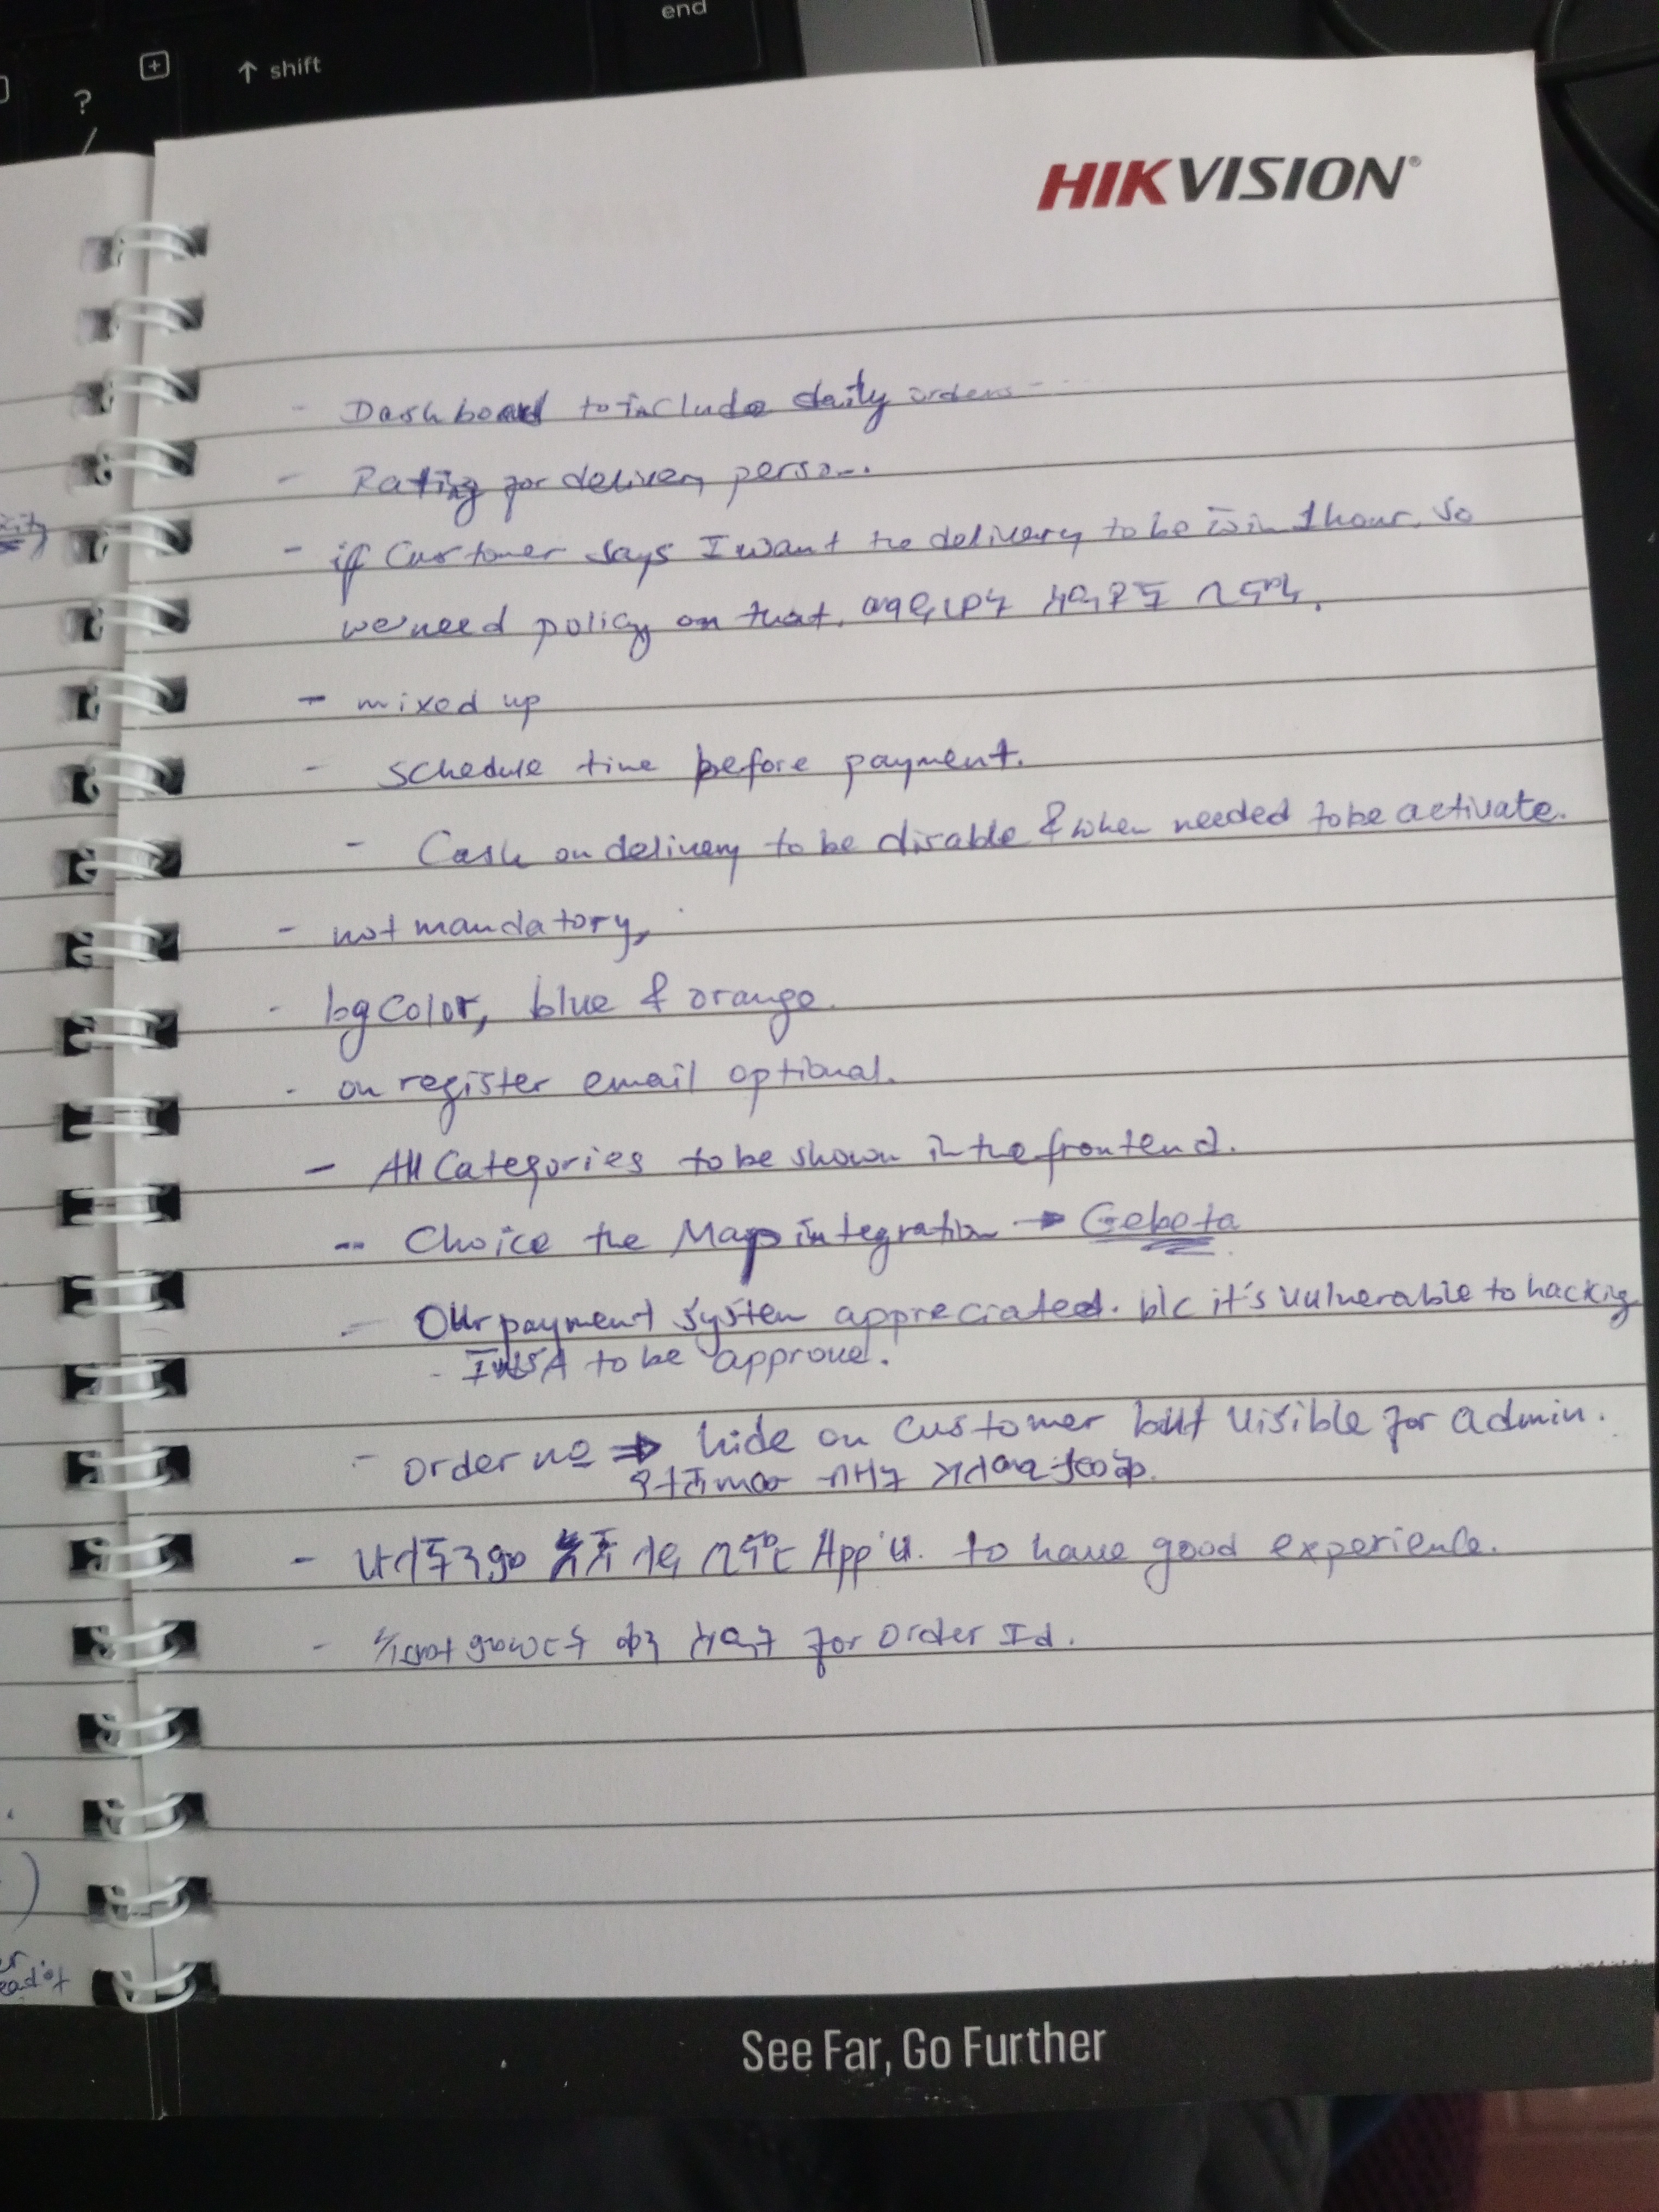 end
↑ shift
?
/
HIKVISION®
- Dashboard to include daily orders
- Rating for delivery person.
- if Customer says I want the delivery to be w̄in 1 hour. so
we need policy on that.
- mixed up
- schedule time before payment.
- Cash on delivery to be disable & when needed to be activate.
- not mandatory,
- bg color, blue & orange.
- on register email optional.
- All Categories to be shown in the frontend.
- Choice the Map integration → Gebeta
- Our payment system appreciated. b/c it's vulnerable to hacking
- INSA to be approve.
- order no ⇒ hide on customer but visible for admin.
- App'ሁ. to have good experience.
- for order Id.
See Far, Go Further